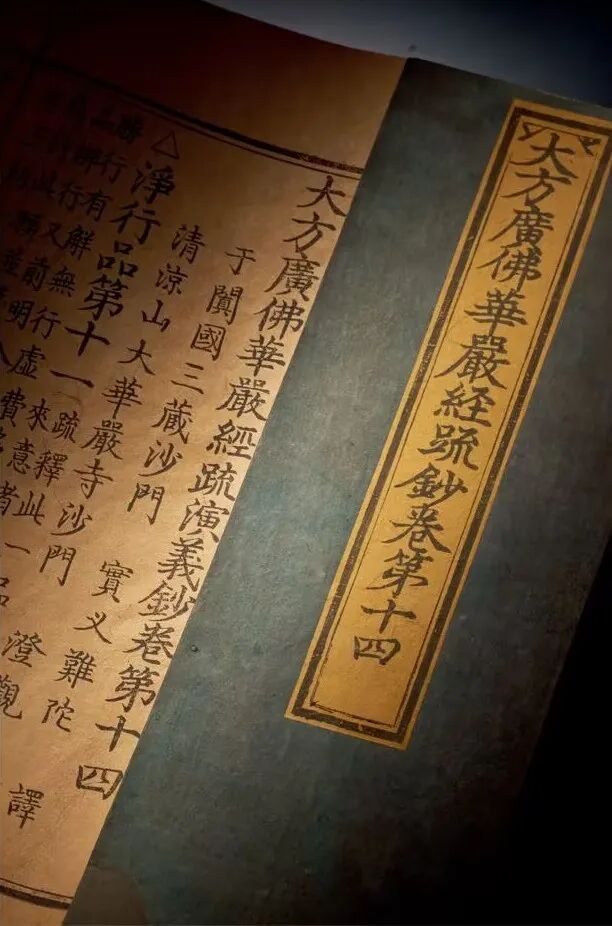 大方廣佛華嚴経疏鈔卷第十四
大方廣佛華嚴經疏演義鈔卷第十四
于闐國三藏沙門 實叉難陀 譯
清涼山大華嚴寺沙門 澄觀
△淨行品第十一 疏釋此一品
來意者
勝行有解無行虛費